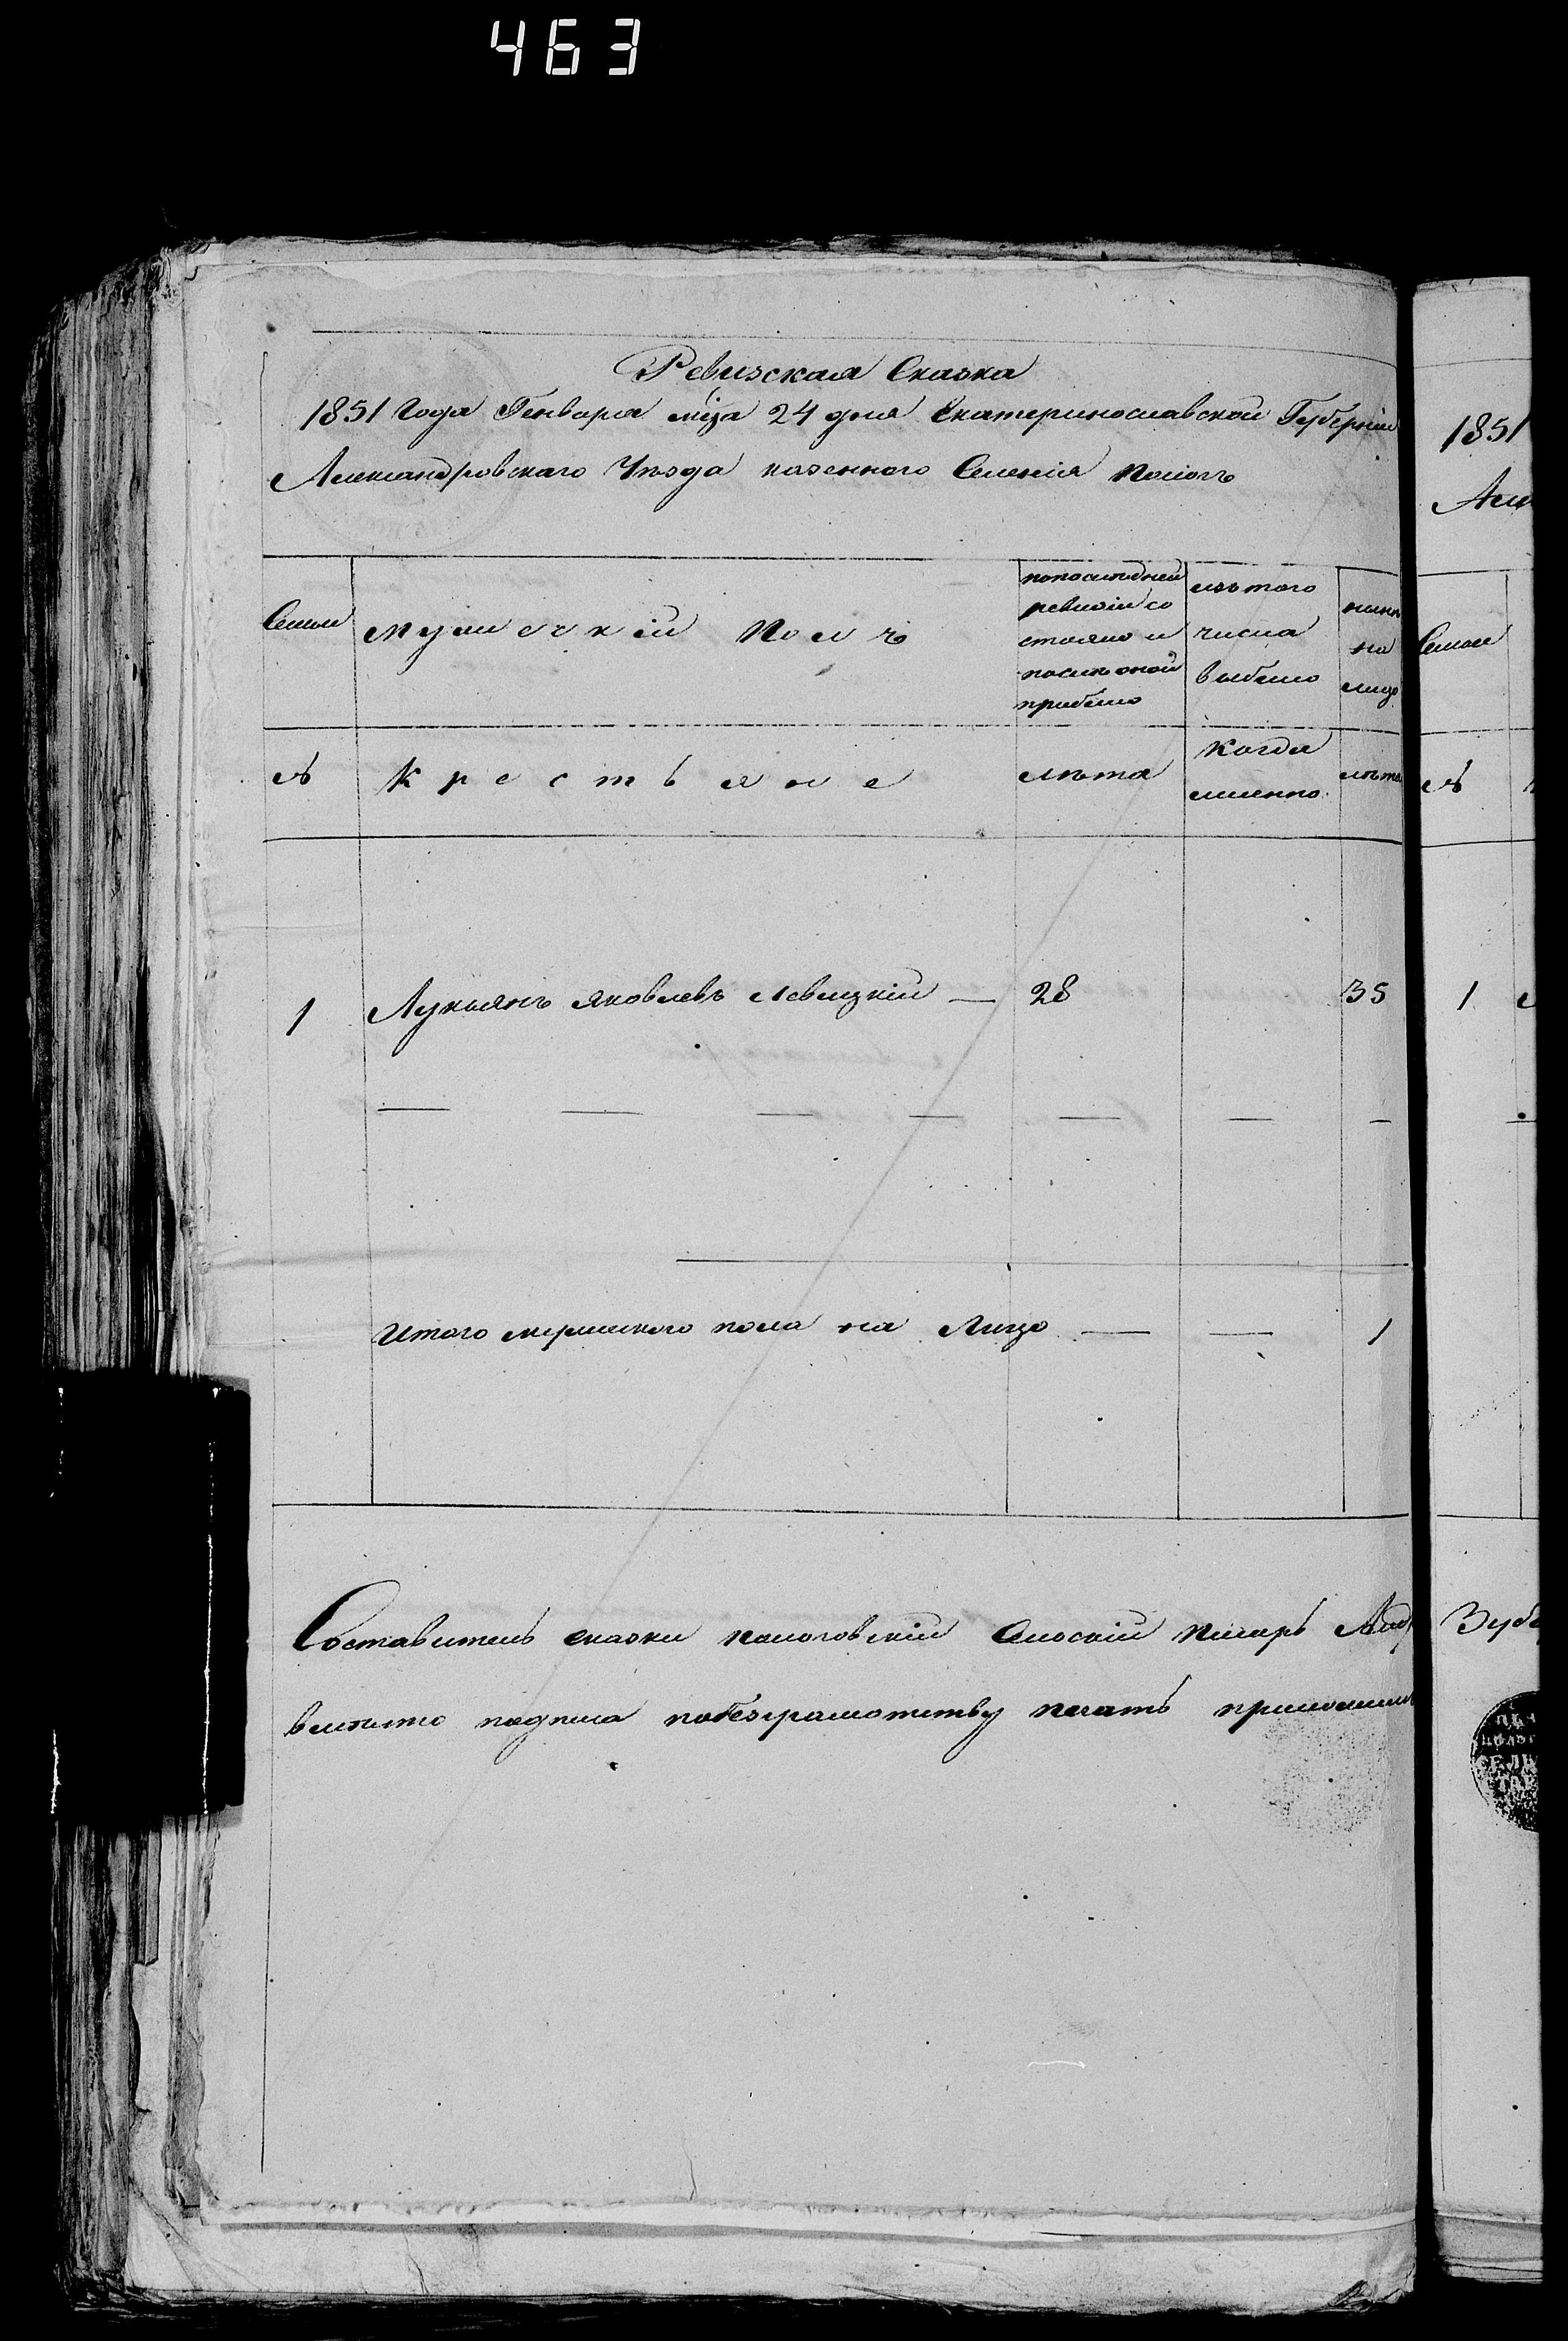 463
Ревизская Сказка
1851 Года Генваря мца 24 дня Екатеринославской Губерніи
Александровскаго Уѣзда казенного Селенія Пологъ
Семьи
Мужескій Полъ
попослѣдней
ревизіи со
стояло и
послѣ оной
прибыло
изъ того
числа
выбыло
нынѣ
на
лицо
№
Крестьяне
лѣта
когда
именно
лѣта
1 Лукьянъ Яковлевъ Левицкій — 28 35
Итого мужеского пола на Лицо — — 1
Составитель сказки Пологовскій Сельскій Писарь
вмѣсто подписа побезграмотству печать приложилъ
1851
Семьи
№
1